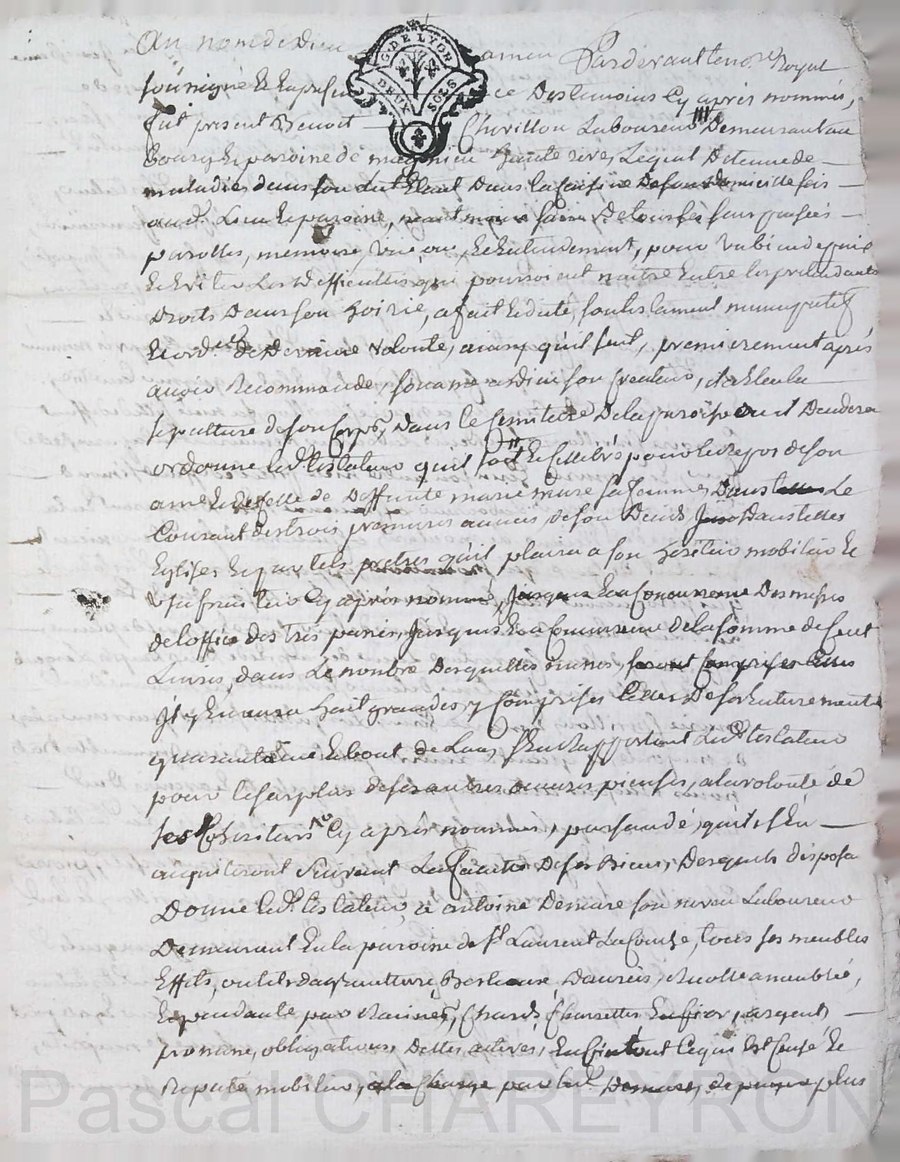 Au nom de Dieu amen Pardevant le no.re Royal
soussigné et en presence Des temoins Cy après nommés,
fut present Benoit Chevillon Laboureur Demeurant au
Bourg et paroisse de Lequel Detenu de
maladie dans son Lit Etant Dans la Domicile sis
aud. Lieu et paroisse, neantmoins sain De tous ses sens pensées
parolles, memoire, vue ouie et Entendement, pour
et Eviter Les Difficultés qui pourroient naitre Entre les pretendants
Droits Dans son hoirie, a fait et dicté, son testament nuncupatif
et ord.ce De Derniere volonté, ainsy qu'il suit, premierement après
avoir Recommandé, son ame a dieu son Createur, et a Elu la
sepulture de son Corps, Dans le Cimitiere De la paroisse ou il Decedera
ordonne led. testateur qu'il soit Celebrés pour le repos de son
ame et de celle de Deffunte marie mure sa femme, Dans Le
Courant des trois premieres années de son Deces Dans telles
Eglises et par tels pretres qu'il plaira a son heritier mobilier et
usufruitier Cy après nommé, Des messes
de l'office des trepassés, Jusques a la Concurrence de la somme de Cent
Livres, Dans Le nombre Desquelles messes, seront Comprises Celles
Il y En aura huit grandes, y Comprises Celles De son Enterrement
quarantaine et bout de L'an, s'En Rapportant Led. testateur
pour le surplus de ses autres œuvres pieuses, a la volonté de
ses heritiers Cy après nommés, persuadé, qu'ils s'En
aquiteront suivant La faculté De ses Biens, Desquels disposant
Donne Led. testateur, a antoine Demure son neveu Laboureur
Demeurant En la paroisse de S.t Laurent La Conche, tous ses meubles
Effets, outils d'agriculture, Bestiaux Denrées, recolte ameublie,
Et pendante par Racines, Chars, Charrettes argent
promesses, obligations Dettes actives, Enfin tout Ce qui Est Censé et
Reputé mobilier, a la Charge par led. Demure, de plus
Pascal CHAREYRON
G. DE LYON
DEUX SOLS